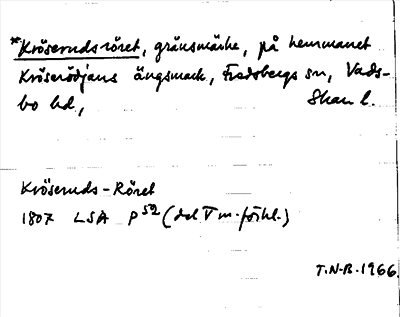 *Kröserudsröret, gränsmärke, på hemmanet
Kröserödjans ängsmark, Fredsbergs sn, Vads-
bo hd, Skar l.
Kröseruds-Röret
1807 LSA P 52 (del V m. förhl.)
T.N-B. 1966.